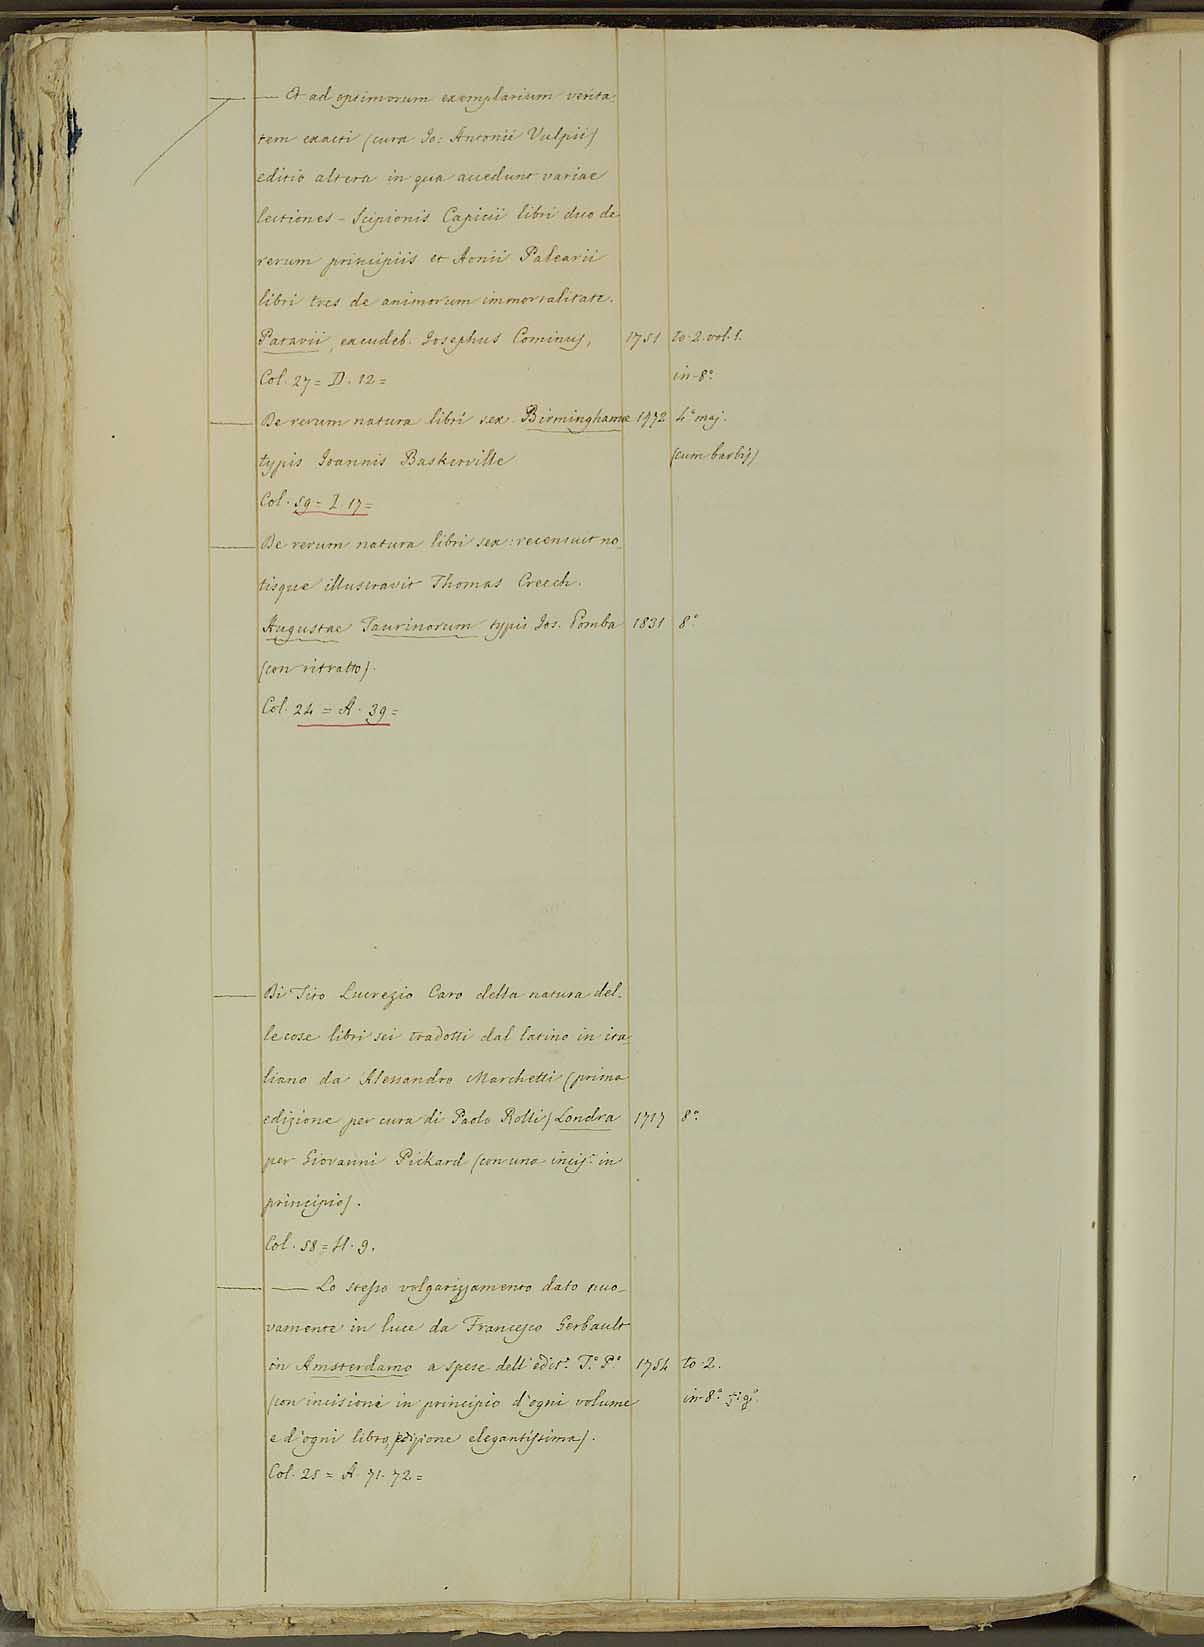 —— Et ad optimorum exemplarium verita-
tem exacti (cura Jo: Antonii Vulpii)
editio altera in qua accedunt variae
lectiones - Scipionis Capicii libri duo de
rerum principiis et Aonii Palearii
libri tres de animorum immortalitate.
Patavii, excudeb. Josephus Cominus, 1751 to. 2. vol. 1.
Col. 27 = D. 12 = in-8.°
De rerum natura libri sex. Birminghamae 1772 4.° maj.
typis Joannis Baskerville (cum barbis)
Col. 59 = I. 17 =
De rerum natura libri sex: recensuit no-
tisque illustravit Thomas Creech.
Augustae Taurinorum typis Jos. Pomba 1831 8.°
(con ritratto).
Col. 24 = A. 39 =
Di Tito Lucrezio Caro della natura del-
le cose libri sei tradotti dal latino in ita-
liano da Alessandro Marchetti (prima
edizione per cura di Paolo Rolli) Londra 1717 8.°
per Giovanni Pickard (con una incis.e in
principio).
Col. 58 = H. 9.
—— Lo stesso volgarizzamento dato nuo-
vamente in luce da Francesco Gerbault
in Amsterdamo a spese dell'edit.e T.° P.° 1754 to. 2.
(con incisioni in principio d'ogni volume in-8.°
e d'ogni libro, edizione elegantissima).
Col. 25 = A. 71. 72 =